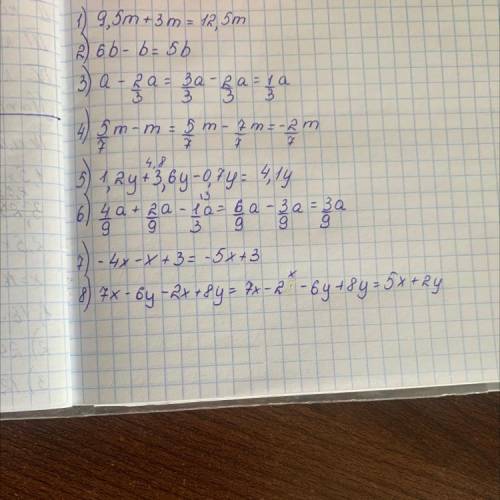 1) 9,5m+3m=12,5m
2) 6b-b=5b
3) a - 2/3 a = 3/3 a - 2/3 a = 1/3 a
4) 5/7 m - m = 5/7 m - 7/7 m = -2/7 m
4,8
5) 1,2y+3,6y-0,7y= 4,1y
\3
6) 4/9 a + 2/9 a - 1/3 a = 6/9 a - 3/9 a = 3/9 a
7) -4x-x+3=-5x+3
8) 7x-6y-2x+8y=7x-2x-6y+8y=5x+2y